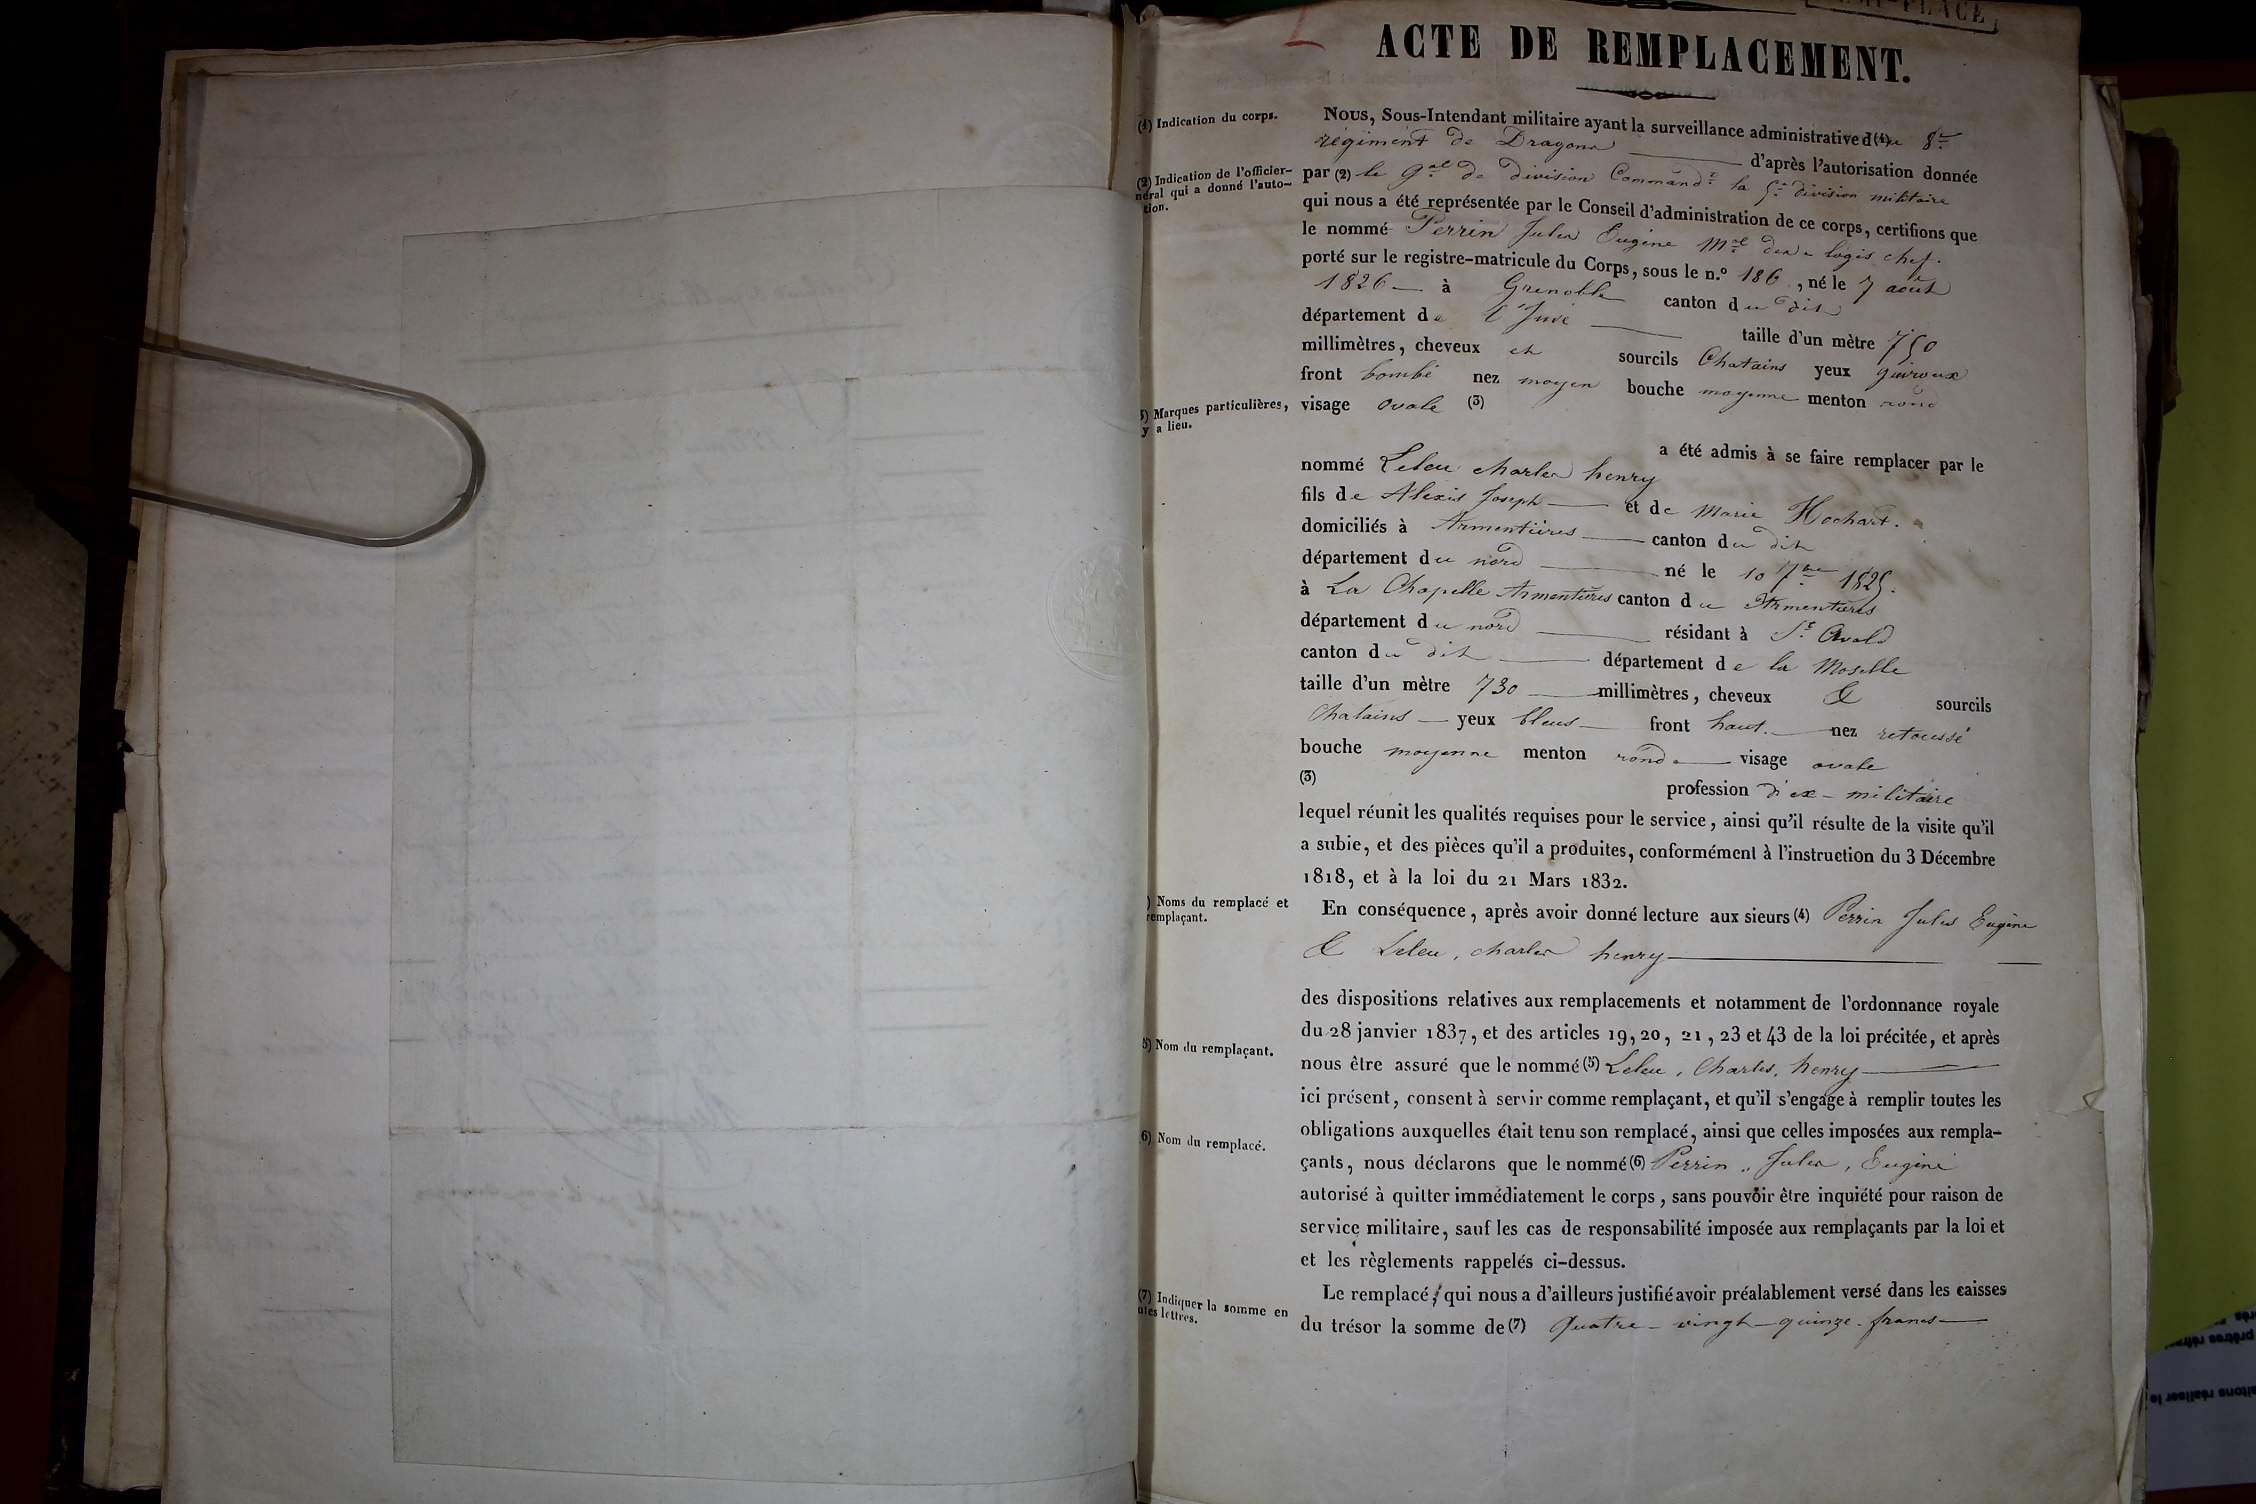 ACTE DE REMPLACEMENT.
(1) Indication du corps.
Nous, Sous-Intendant militaire ayant la surveillance administrative d(1)u 8e
régiment de Dragons d'après l'autorisation donnée
(2) Indication de l'officier-
néral qui a donné l'auto-
tion.
par (2) le Gal de division Commandt la 5e division militaire
qui nous a été représentée par le Conseil d'administration de ce corps, certifions que
le nommé Perrin Jules Eugène Mal des logis chef.
porté sur le registre-matricule du Corps, sous le n.º 186, né le 7 août
1826 à Grenoble canton du dit
département de l'Isère taille d'un mètre 750
millimètres, cheveux et sourcils Chatains yeux
front bombé nez moyen bouche moyenne menton rond
) Marques particulières,
y a lieu.
visage ovale (3)
a été admis à se faire remplacer par le
nommé Leleu charles henry
fils de Alexis Joseph et de Marie Hochart.
domiciliés à Armentières canton du dit
département du nord né le 10 7bre 1825.
à La Chapelle Armentières canton d Armentières
département du nord résidant à St. Avold
canton du dit département de la Moselle
taille d'un mètre 730 millimètres, cheveux & sourcils
Chatains yeux bleus front haut. nez retoussé
bouche moyenne menton rond visage ovale
(3) profession d'ex-militaire
lequel réunit les qualités requises pour le service, ainsi qu'il résulte de la visite qu'il
a subie, et des pièces qu'il a produites, conformément à l'instruction du 3 Décembre
1818, et à la loi du 21 Mars 1832.
) Noms du remplacé et
remplaçant.
En conséquence, après avoir donné lecture aux sieurs (4) Perrin Jules Eugène
& Leleu, charles henry
des dispositions relatives aux remplacements et notamment de l'ordonnance royale
du 28 janvier 1837, et des articles 19, 20, 21, 23 et 43 de la loi précitée, et après
5) Nom du remplaçant.
nous être assuré que le nommé (5) Leleu, Charles, henry
ici présent, consent à servir comme remplaçant, et qu'il s'engage à remplir toutes les
obligations auxquelles était tenu son remplacé, ainsi que celles imposées aux rempla-
6) Nom du remplacé.
çants, nous déclarons que le nommé (6) Perrin, Jules, Eugène
autorisé à quitter immédiatement le corps, sans pouvoir être inquiété pour raison de
service militaire, sauf les cas de responsabilité imposée aux remplaçants par la loi et
et les règlements rappelés ci-dessus.
(7) Indiquer la somme en
utes lettres.
Le remplacé, qui nous a d'ailleurs justifié avoir préalablement versé dans les caisses
du trésor la somme de (7) quatre-vingt-quinze francs